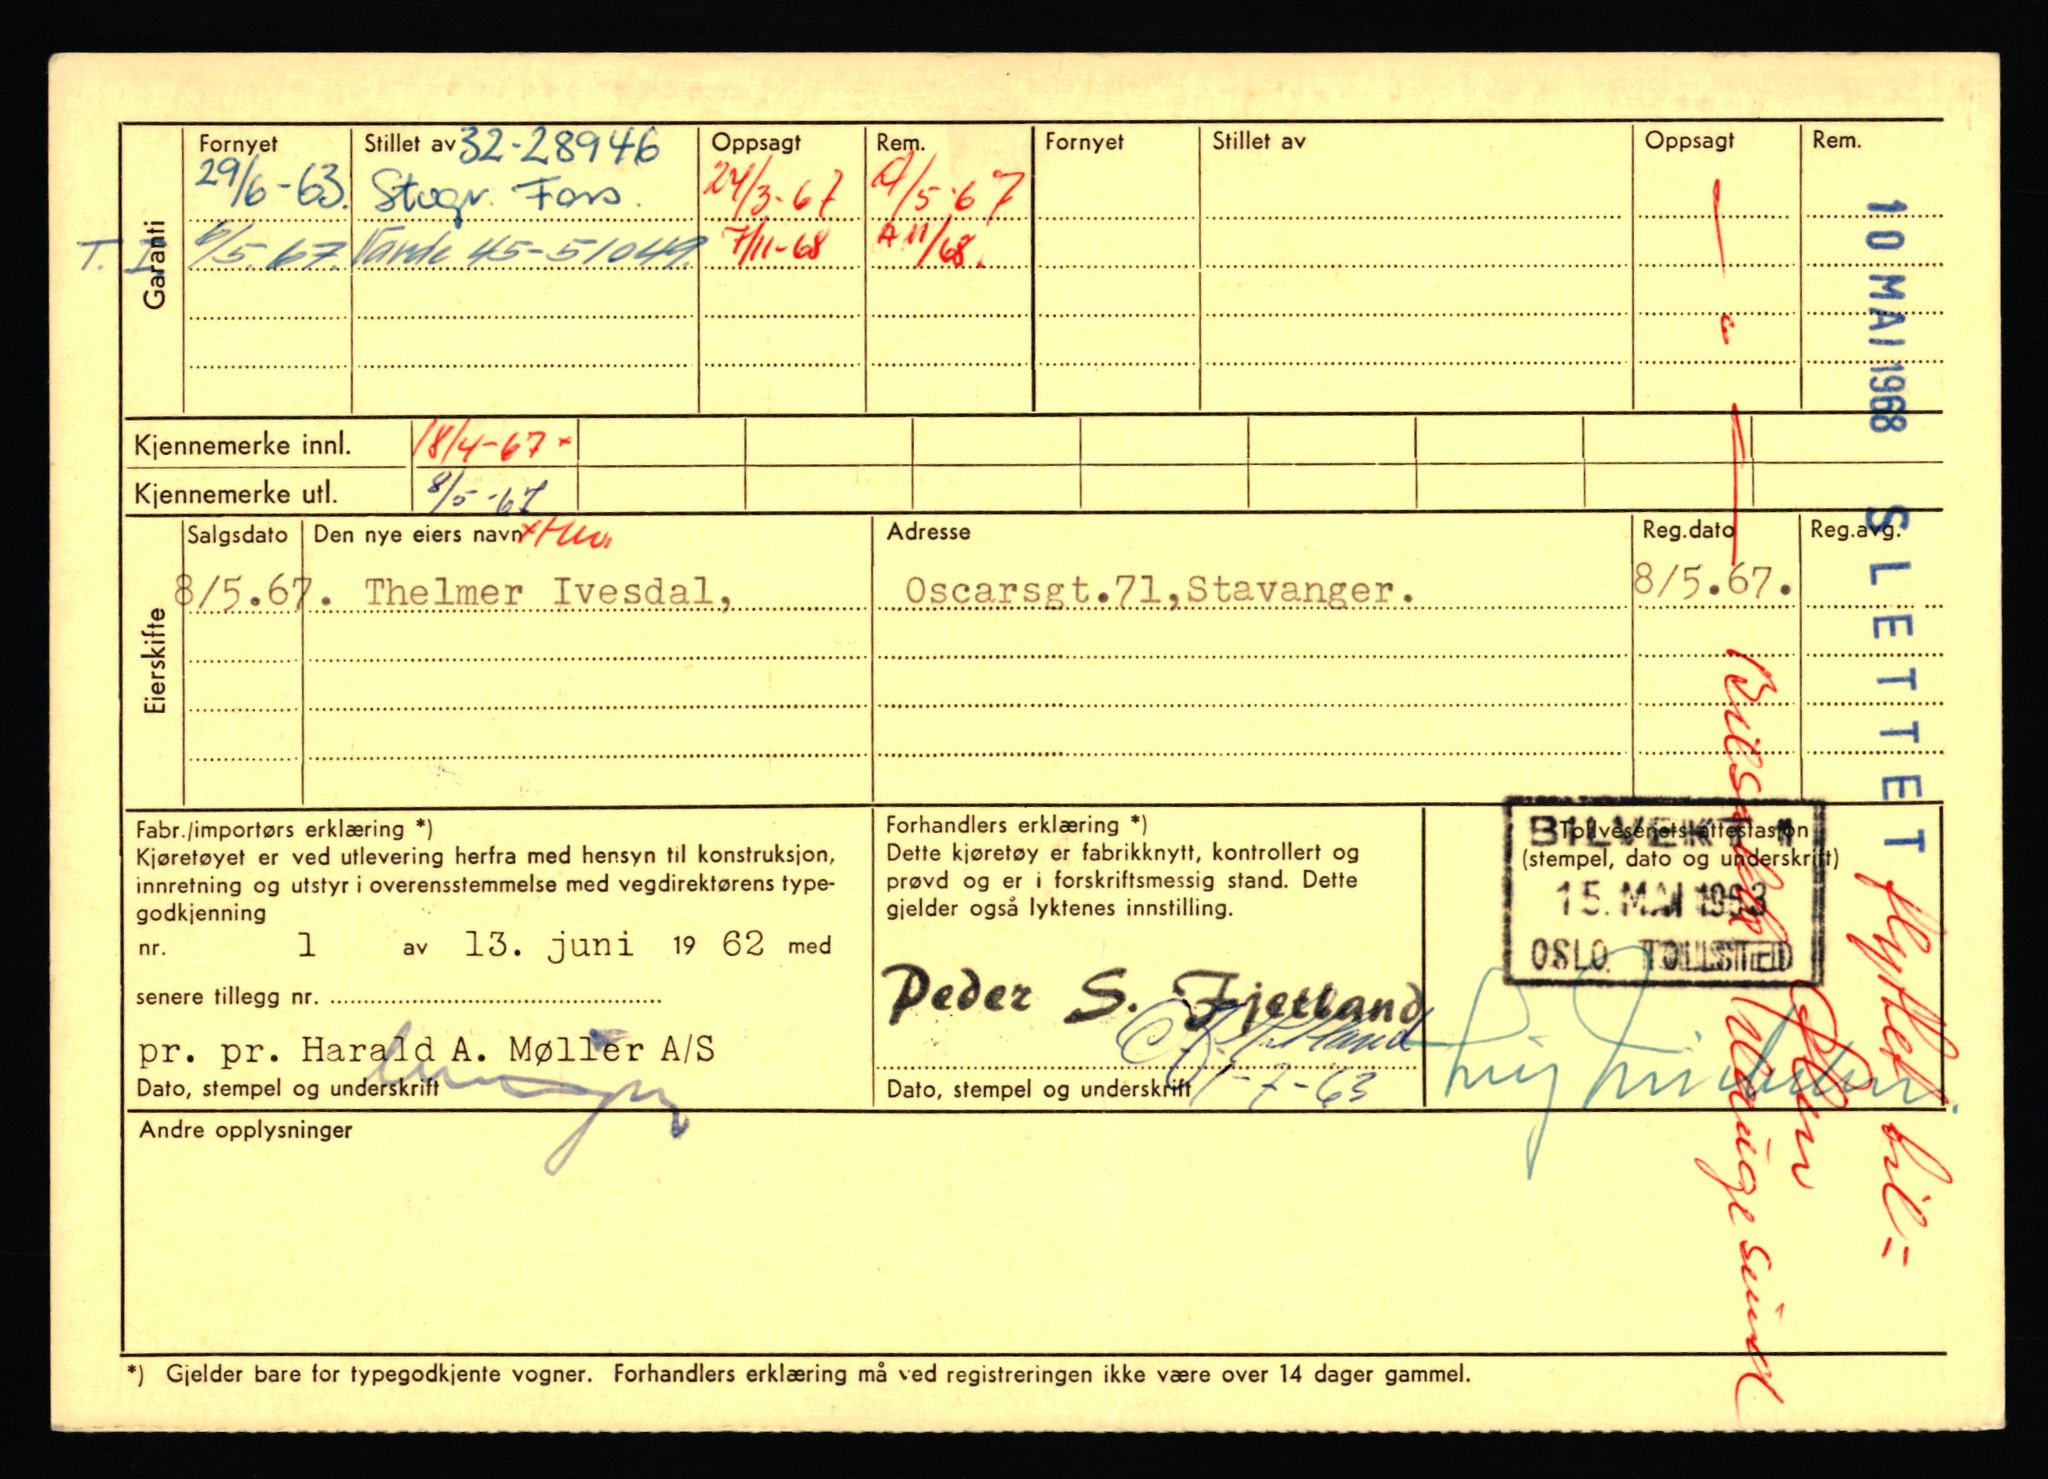 Garanti
Fornyet Stillet av 32-28946 Oppsagt Rem. Fornyet Stillet av Oppsagt Rem.
29/6-63. Stvgr. Fors. 24/3-67 /5-67
T. I 6/5.67. Varde 45-51049. 7/11-68 11/68.
Kjennemerke innl. 18/4-67 x
Kjennemerke utl. 8/5-67
Eierskifte
Salgsdato Den nye eiers navn Adresse Reg.dato Reg.avg.
8/5.67. Thelmer Ivesdal, Oscarsgt.71,Stavanger. 8/5.67.
10 MAI 1968 SLETTET
flyttet bil =
Fabr./importørs erklæring *)
Kjøretøyet er ved utlevering herfra med hensyn til konstruksjon,
innretning og utstyr i overensstemmelse med vegdirektørens type-
godkjenning
nr. 1 av 13. juni 19 62 med
senere tillegg nr.
pr. pr. Harald A. Møller A/S
Dato, stempel og underskrift
Forhandlers erklæring *)
Dette kjøretøy er fabrikknytt, kontrollert og
prøvd og er i forskriftsmessig stand. Dette
gjelder også lyktenes innstilling.
Peder S. Fjetland
1-7-63
Dato, stempel og underskrift
Tollvesenets attestasjon
(stempel, dato og underskrift)
BILVEKT 1
15. MAI 1963
OSLO TOLLSTED
Andre opplysninger
*) Gjelder bare for typegodkjente vogner. Forhandlers erklæring må ved registreringen ikke være over 14 dager gammel.